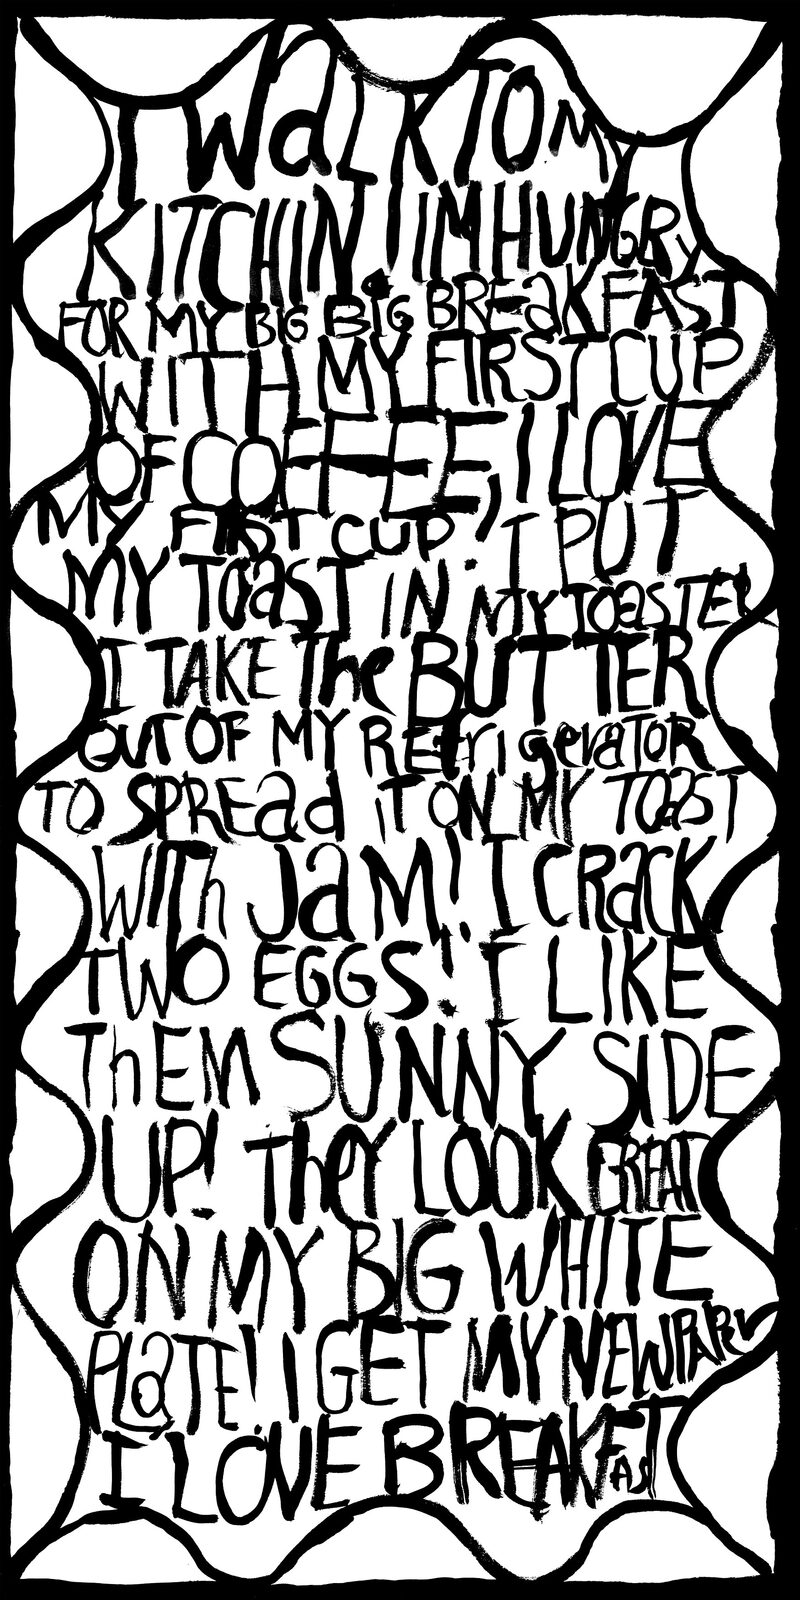 I WaLK TO MY
KITCHIN I IM HUNGRY
FOR MY BIG BIG BREaKFAST
WITH MY FIRST CUP
OF COFFEE, I LOVE
MY FIRST CUP. I PUT
MY TOaST IN MY TOaSTER
I TAKE The BUTTER
OUT OF MY REfrigeraTOR
TO SPREad iT ON MY TOaST
WITh JaM! I CRaCK
TWO EGGS! I LIKE
ThEM SUNNY SIDE
UP! TheY LOOK GREAT
ON MY BIG WHITE
PLaTE! I GET MY NEWPAPER
I LOVE BREAKFAST